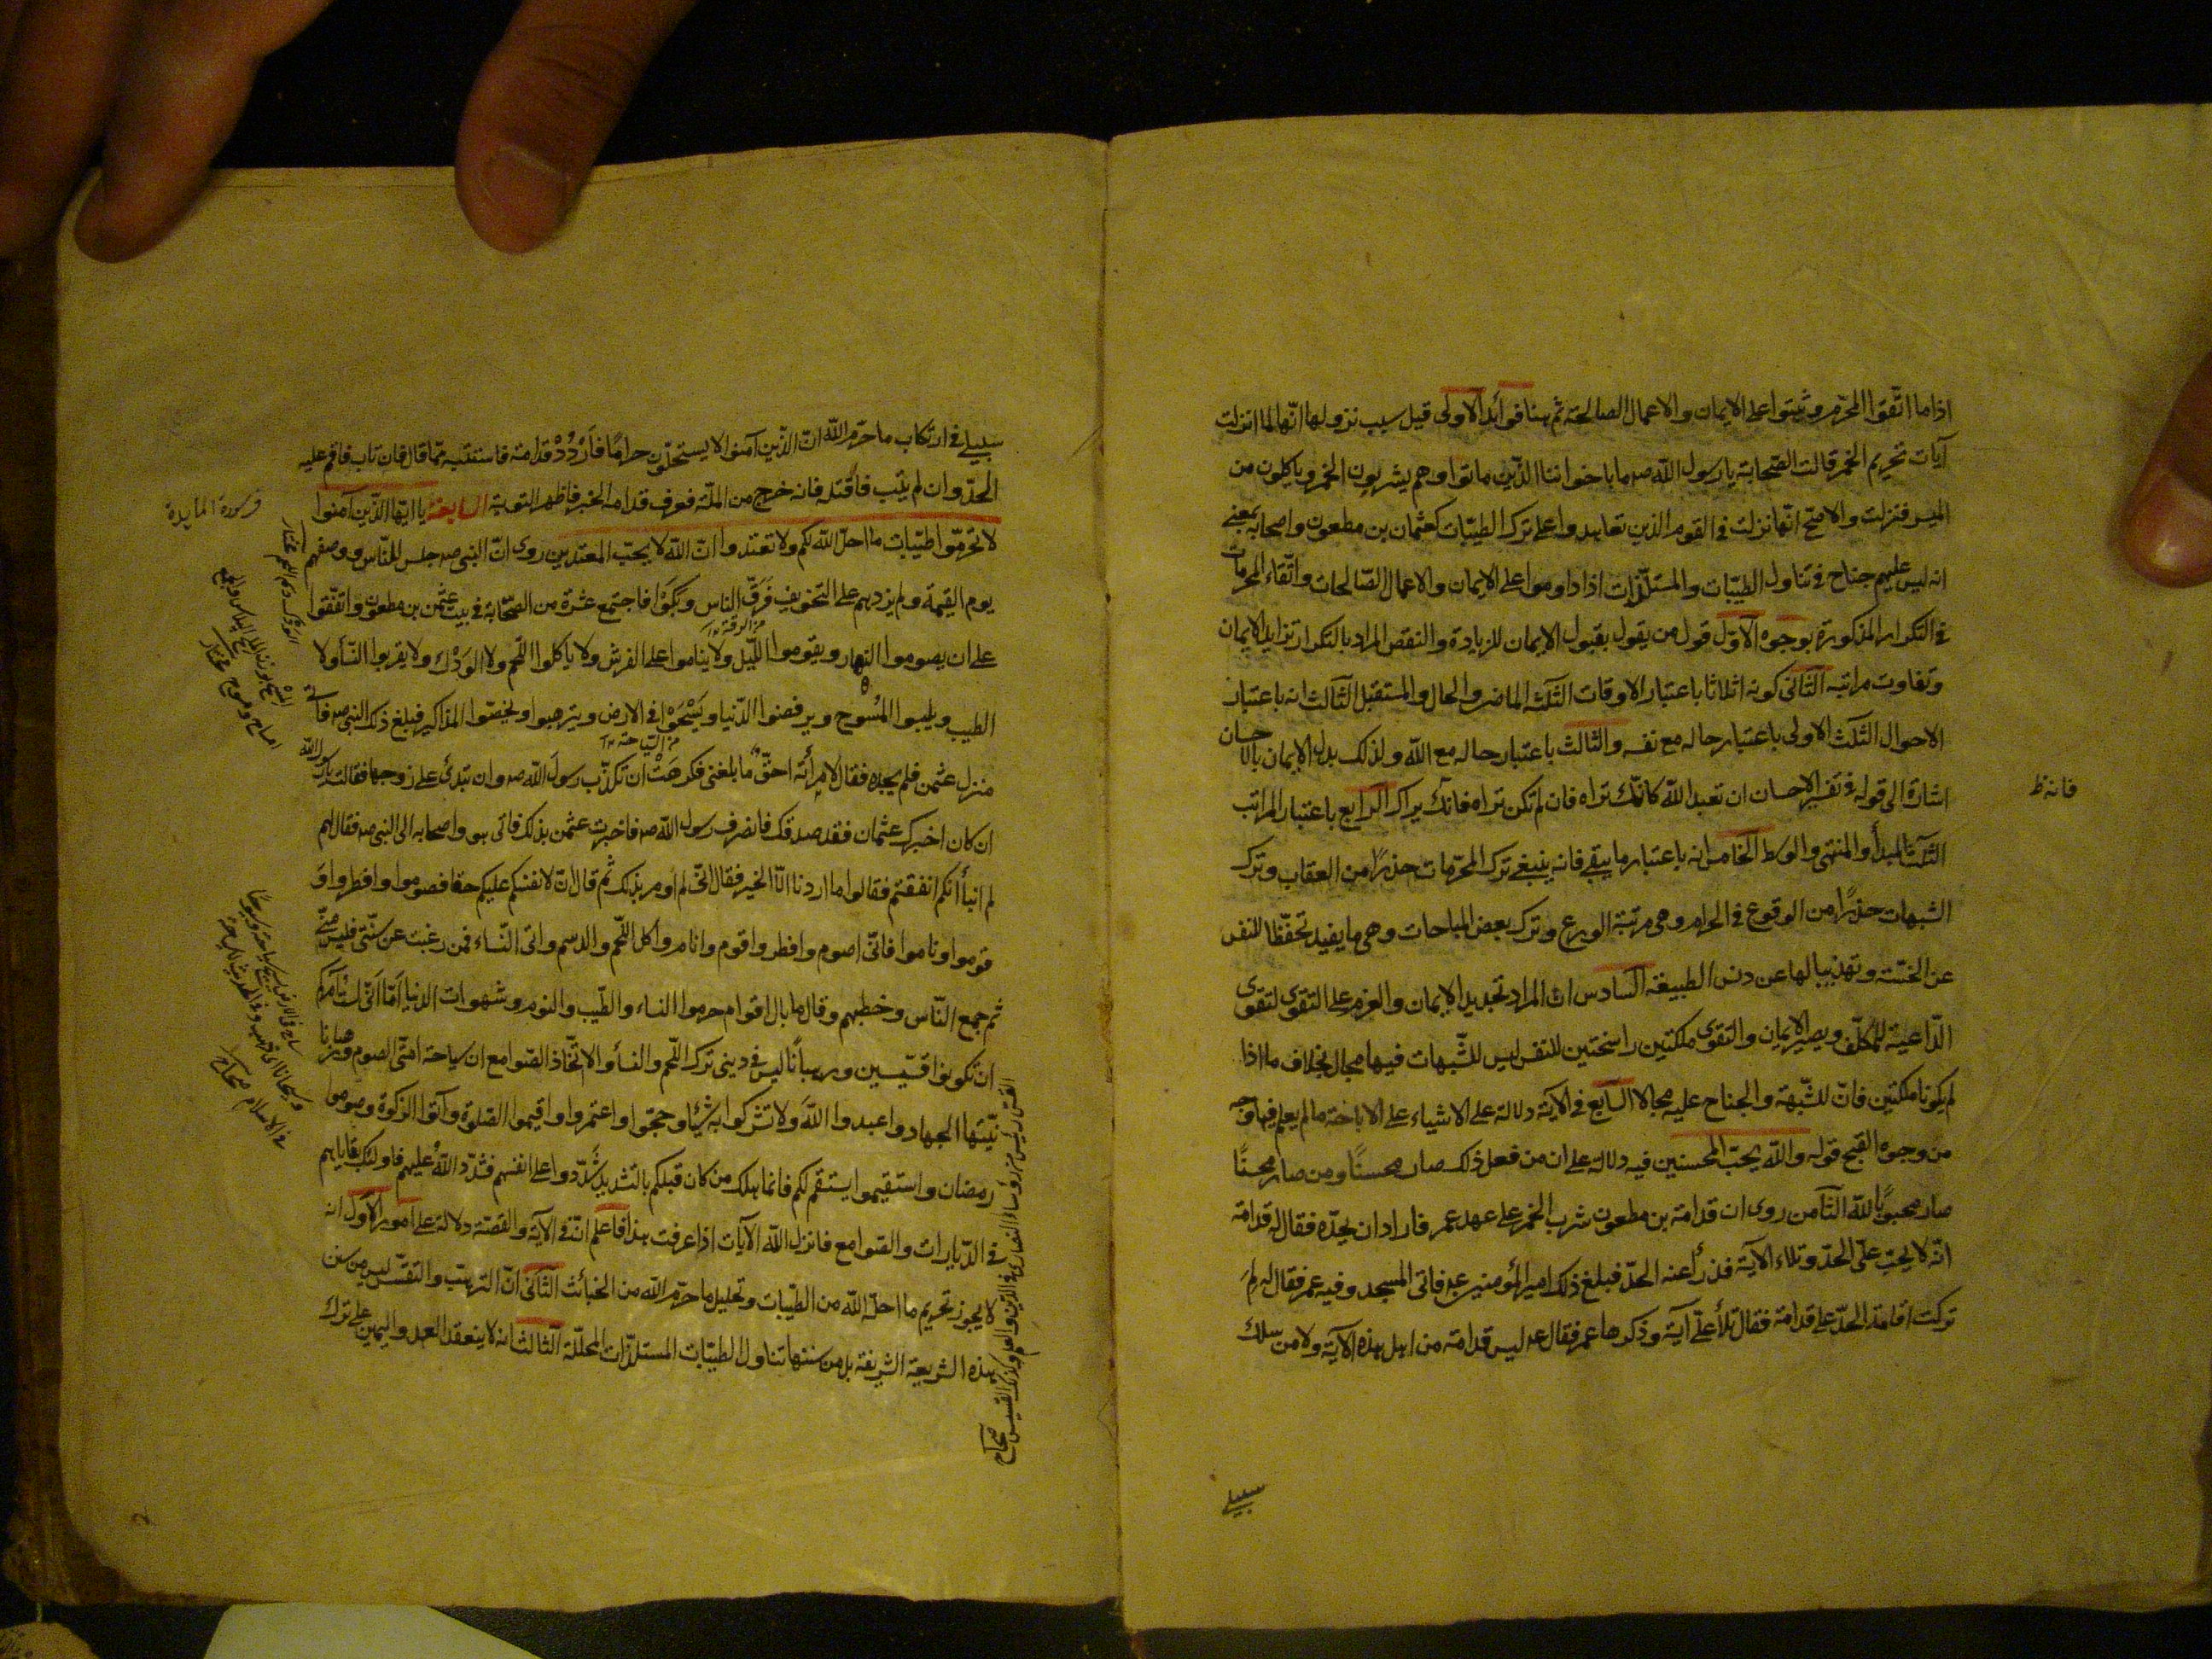 اذا ما اتّقوا المحرّم وثبتوا على الايمان والاعمال الصالحة ثم هنا فوائد الاولى قيل سبب نزولها انّها لما انزلت
آيات تحريم الخمر قالت الصّحابة يا رسول اللّه صه ما با خواننا الذّين ماتوا وهم يشربون الخمر وياكلون من
الميسر فنزلت والاصحّ انّها نزلت في القوم الذين تعاهدوا على ترك الطيّبات كعثمان بن مطعون واصحابه بمعنى
انه ليس عليهم جناح في تناول الطيّبات والمستلذّات اذا داوموا على الايمان والاعمال الصّالحات واتّقاء المحرمات
في التكرار المذكورة بوجوه الاوّل قول من يقول بقبول الايمان للزيادة والنقص المراد بالتكرار تزايد الايمان
وتفاوت مراتبه الثّانى كونه اثلاثا باعتبار الاوقات الثلث الماضى والحال والمستقبل الثّالث انه باعتبار
الاحوال الثّلث الاولى باعتبار حاله مع نفسه والثّالث باعتبار حاله مع اللّه ولذلك بدل الايمان بالاحسان
اشارة الى قوله في تفسير الاحسان ان تعبد اللّه كانّك تراه فان لم تكن تراه فانّك يراك الرّابع باعتبار المراتب
فانه ظ
الثّلث المبدأ والمنتهى والوسط الخامس انه باعتبار ما يبقى فانه ينبغى ترك المحرّمات حذرًا من العقاب وترك
الشبهات حذرًا من الوقوع في الحرام وهى مرتبة الورع وترك بعض المباحات وهى ما يفيد تحفّظا للنفس
عن الخسّة وتهذيبا لها عن دنس الطبيعة السّادس ان المراد تجديد الايمان والعزم على التقوى لتقوى
الدّاعية للمكلّف ويصير الايمان والتقوى ملكتين راسختين للنفس ليس للشّبهات فيها مجال بخلاف ما اذا
لم يكونا ملكتين فانّ للشّبهة والجناح عليه مجالا السّابع في الآية دلالة على الاشياء على الاباحة ما لم يعلم فيها وجه
من وجوه القبح قوله واللّه يحبّ المحسنين فيه دلالة على ان من فعل ذلك صار محسنًا ومن صار محسنًا
صار محبوبًا للّه الثّامن روى ان قدامة بن مطعون شرب الخمر على عهد عمر فاراد ان يحدّه فقال له قدامة
انّه لا يجب علىّ الحدّ وتلاء الآية فدرأ عنه الحدّ فبلغ ذلك امير المؤمنين ع فاتى المسجد وفيه عمر فقال له لم
تركت اقامة الحدّ على قدامة فقال تلأ علىّ آية وذكرها عمر فقال ع ليس قدامة من اهل هذه الآية ولا من سلك
سبيله
سبيله في ارتكاب ما حرّم اللّه انّ الذّين آمنوا لا يستحلّون حرامًا فَاَرْدُدْ قدامة فاستتبه ممّا قال فان تاب فاقم عليه
الحدّ وان لم يتب فاقتله فانه خرج من الملّة فعرف قدامة الخبر فاظهر التوبة السابعة يا ايّها الذّين آمنوا
في سورة المايدة
لا تحرّموا طيّبات ما احلّ اللّه لكم ولا تعتدوا انّ اللّه لا يحبّ المعتدين روى انّ النبى صه جلس للنّاس ووصفهم
يوم القيمة ولم يزدهم على التخويف فَرَقّ النّاس وبَكَوْا فاجتمع عشرة من الصّحابة في بيت عثمن بن مطعون واتّفقوا
من الرقة
على ان يصوموا النهار ويقوموا اللّيل ولا يناموا على الفرش ولا ياكلوا اللّحم ولا الوَدْك ولا يقربوا النّساء ولا
الطيب ويلبسوا المُسوح ويرفضوا الدّنيا ويَسيْحَوْا في الارض ويترهبوا ويخصّوا المذاكير فبلغ ذلك النبى صه فاتى
من السّياحة
منزل عثمن فلم يجده فقال لامرأته احقّ ما بلغنى فكرهَتْ ان تكذّب رسول اللّه صه وان تبدى على زوجها فقالت يا رسول اللّه
ان كان اخبرك عثمان فقد صدقك فانصرف رسول اللّه صه فاخبرت عثمن بذلك فاتى هو واصحابه الى النبى صه فقال لهم
لم انبأ انّكم اتفقتم فقالوا ما اردنا الّا الخير فقال انّى لم اومر بذلك ثم قال انّ لانفسكم عليكم حقا فصوموا وافطروا و
قوموا وناموا فانّى اصوم وافطر واقوم وانام وآكل اللّحم والدسم واتى النّساء فمن رغبت عن سنّتى فليس منّى
ثم جمع النّاس وخطبهم وقال ما بال اقوام حرموا النساء والطّيب والنوم وشهوات الدنيا امّا انّى لست آمركم
ان تكونوا قسّيسين ورهبانًا ليس في دينى ترك اللّحم والنساء والاتّخاذ الصّوامع ان سياحة امتّى الصوم ورهبانيتها
الجهاد واعبدوا اللّه ولا تشركوا به شيئا وحجّوا واعتمروا واقيموا الصّلوة وآتوا الزكوة وصوموا
رمضان واستقيموا يستقم لكم فانما هلك من كان قبلكم بالتشديد شدّدوا على انفسهم فشدّد اللّه عليهم فاولئك بقاياهم
في الدّيارات والصّوامع فانزل اللّه الآيات اذا عرفت هذا فاعلم انّ في الآية والقصّة دلالة على امور الاوّل انه
لا يجوز تحريم ما احلّ اللّه من الطّيبات وتحليل ما حرّم اللّه من الخبائث الثّانى انّ الترهّب والتقشّف ليس من سنن
هذه الشريعة الشريفة بل من سننها تناول الطيبّات المستلذّات المحلّلة الثّالث انه لا ينعقد العهد واليمين على ترك
القسّ رئيس من رؤساء النصارى في الدّين والعلم وكذلك القسيس صحاح
الوَدَك دسم اللحم مختار